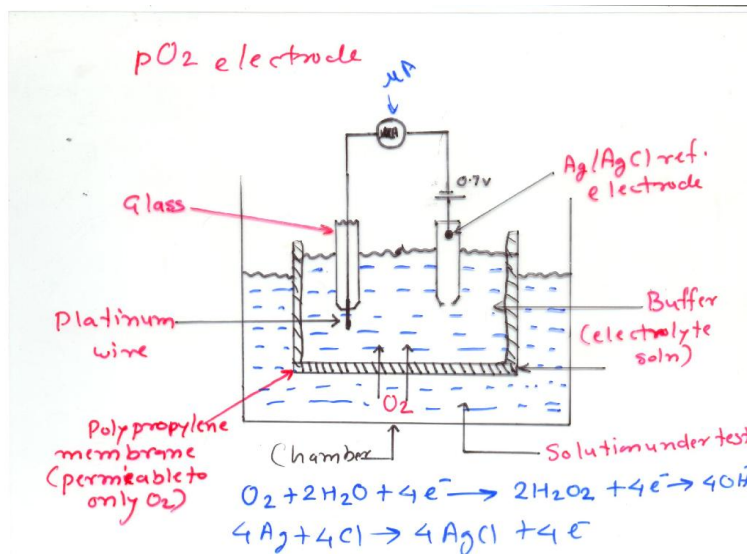 pO2 electrode
µA
0.7v
Ag/AgCl ref.
electrode
Glass
Platinum
wire
Buffer
(electrolyte
soln)
O2
Polypropylene
membrane
(permeable to
only O2)
Chamber
Solution under test
O2 + 2H2O + 4e⁻ → 2H2O2 + 4e⁻ → 4OH
4Ag + 4Cl → 4AgCl + 4e